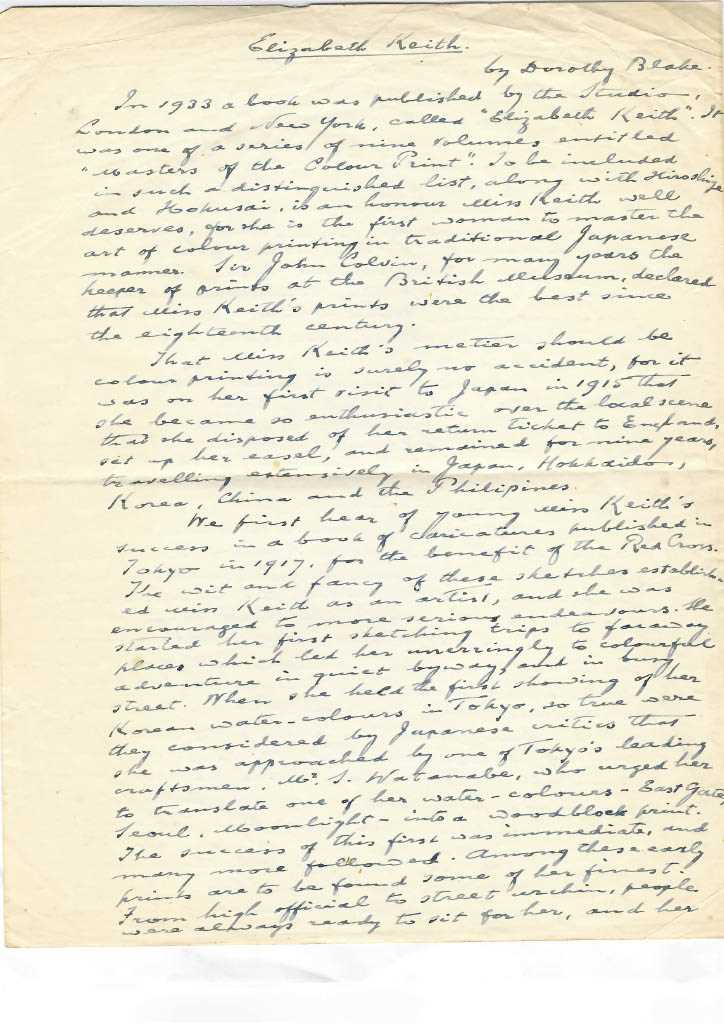 Elizabeth Keith.
by Dorothy Blake.
In 1933 a book was published by the Studio,
London and New York, called "Elizabeth Keith". It
was one of a series of nine volumes entitled
"Masters of the Colour Print". To be included
in such a distinguished list, along with Hiroshige
and Hokusai, is an honour Miss Keith well
deserves, for she is the first woman to master the
art of colour printing in traditional Japanese
manner. Sir John Colvin, for many years the
keeper of prints at the British Museum, declared
that Miss Keith's prints were the best since
the eighteenth century.
That Miss Keith's metier should be
colour printing is surely no accident, for it
was on her first visit to Japan in 1915 that
she became so enthusiastic over the local scene
that she disposed of her return ticket to England,
set up her easel, and remained for nine years,
travelling extensively in Japan, Hokkaido,
Korea, China and the Philipines.
We first hear of young Miss Keith's
success in a book of caricatures published in
Tokyo in 1917, for the benefit of the Red Cross.
The wit and fancy of these sketches establish-
ed Miss Keith as an artist, and she was
encouraged to more serious endeavours. She
started her first sketching trips to faraway
places which led her unerringly to colourful
adventure in quiet byways and in busy
street. When she held the first showing of her
Korean water-colours in Tokyo, so true were
they considered by Japanese critics that
she was approached by one of Tokyo's leading
craftsmen, Mr. S. Watanabe, who urged her
to translate one of her water-colours - East Gate,
Seoul, Moonlight - into a woodblock print.
The success of this first was immediate, and
many more followed. Among these early
prints are to be found some of her finest.
From high official to street urchin, people
were always ready to sit for her, and her